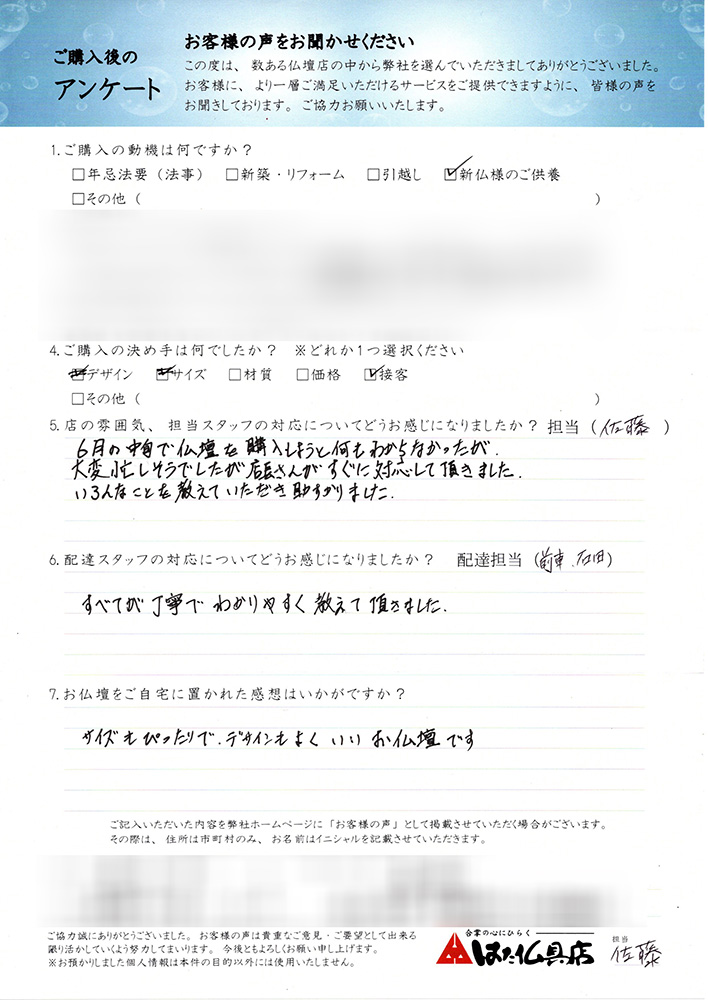 ご購入後の
アンケート
お客様の声をお聞かせください
この度は、数ある仏壇店の中から弊社を選んでいただきましてありがとうございました。
お客様に、より一層ご満足いただけるサービスをご提供できますように、皆様の声を
お聞きしております。ご協力お願いいたします。
1.ご購入の動機は何ですか？
□年忌法要（法事） □新築・リフォーム □引越し ☑新仏様のご供養
□その他（ ）
4.ご購入の決め手は何でしたか？ ※どれか1つ選択ください
□デザイン □サイズ □材質 □価格 ☑接客
□その他（ ）
5.店の雰囲気、担当スタッフの対応についてどうお感じになりましたか？ 担当（佐藤）
6月の中旬で仏壇を購入しようと何もわからなかったが、
大変忙しそうでしたが店長さんがすぐに対応して頂きました.
いろんなことを教えていただき助すかりました.
6.配達スタッフの対応についてどうお感じになりましたか？ 配達担当（前車、石田）
すべてが丁寧でわかりやすく教えて頂きました.
7.お仏壇をご自宅に置かれた感想はいかがですか？
サイズもぴったりで、デザインもよくいいお仏壇です
ご記入いただいた内容を弊社ホームページに「お客様の声」として掲載させていただく場合がございます。
その際は、住所は市町村のみ、お名前はイニシャルを記載させていただきます。
ご協力誠にありがとうございました。お客様の声は貴重なご意見・ご要望として出来る
限り活かしていくよう努力してまいります。今後ともよろしくお願い申し上げます。
※お預かりしました個人情報は本件の目的以外には使用いたしません。
合掌の心にひらく
はた仏具店
担当
佐藤